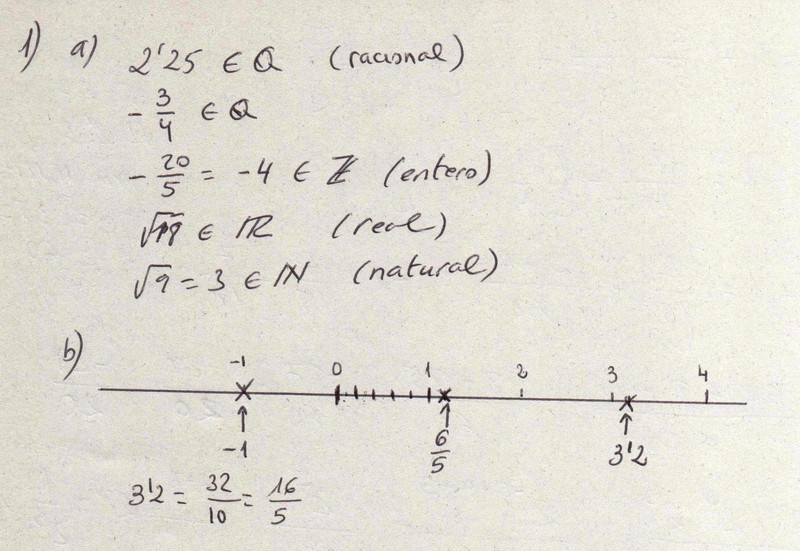 1) a) 2'25 ∈ Q (racional)
- 3/4 ∈ Q
- 20/5 = -4 ∈ Z (entero)
∈ R (real)
√9 = 3 ∈ N (natural)
b)
-1 0 1 2 3 4
-1 6/5 3'2
3'2 = 32/10 = 16/5